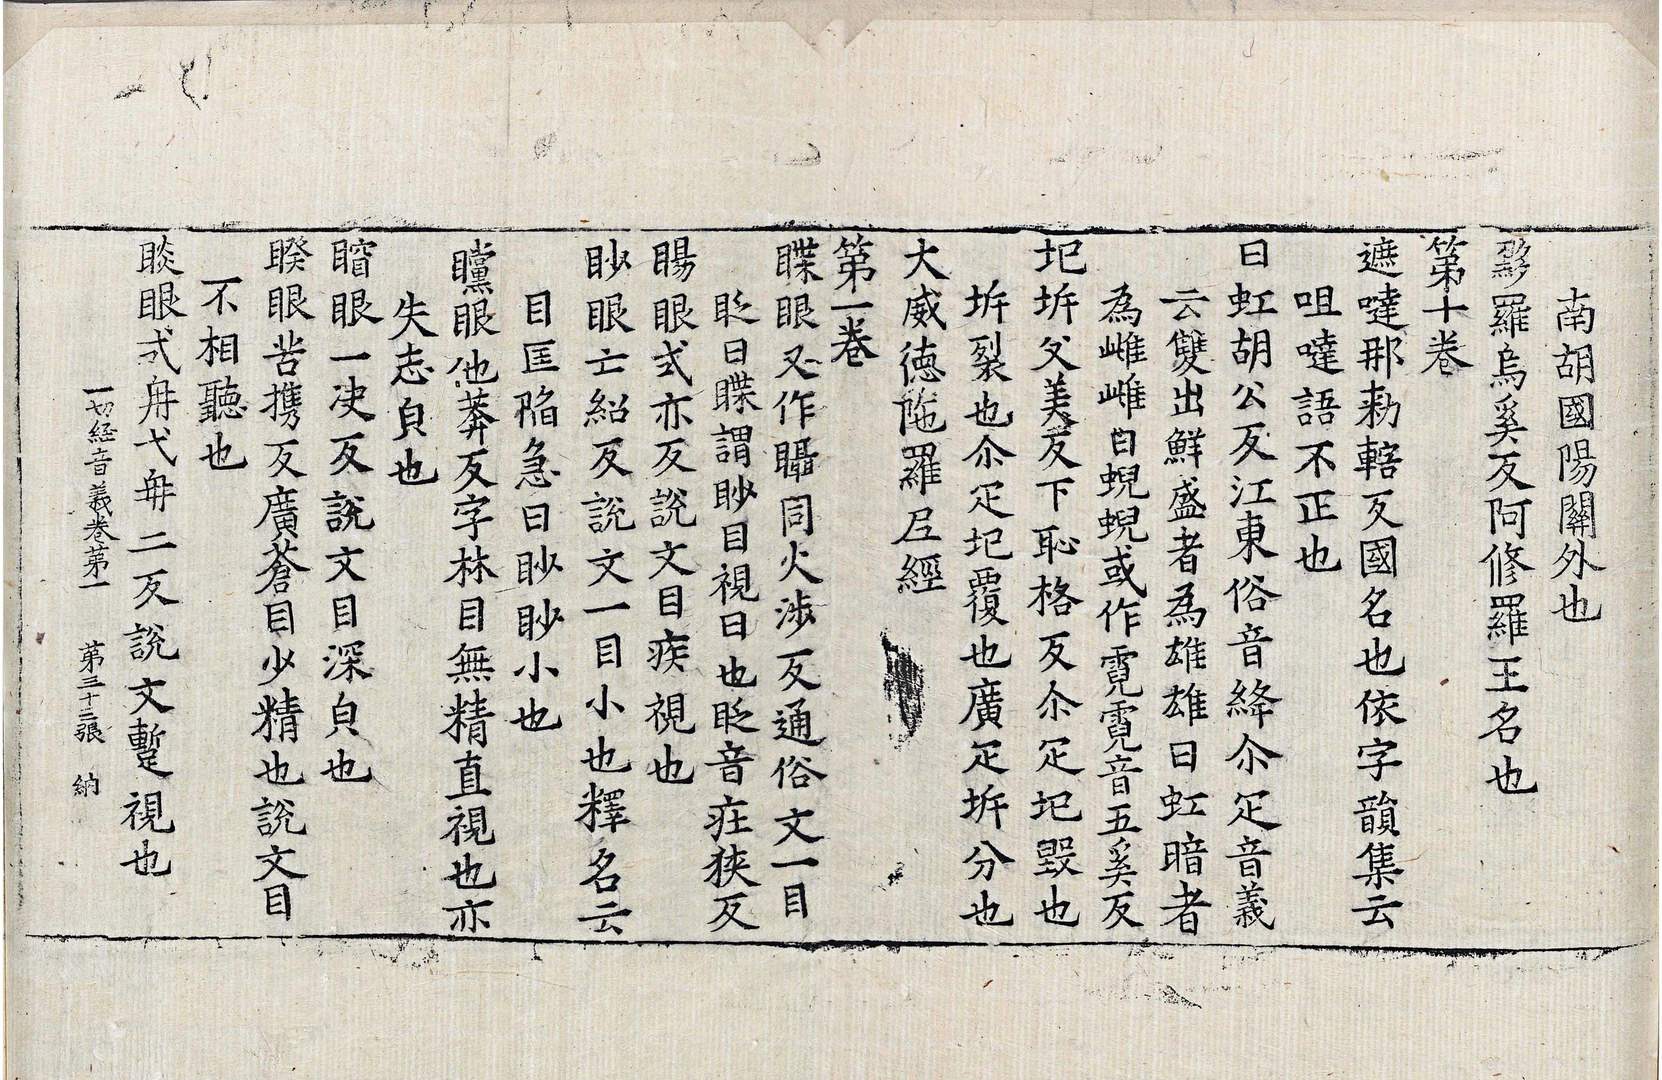 南胡國陽關外也
䵬羅烏奚反阿修羅王名也
第十卷
遮噠那勑轄反國名也依字韻集云
咀噠語不正也
曰虹胡公反江東俗音絳尒疋音義
云雙出鮮盛者為雄雄曰虹暗者
為雌雌曰蜺蜺或作霓霓音五奚反
圯坼父美反下恥格反尒疋圯毀也
坼裂也尒疋圯覆也廣疋坼分也
大威德陁羅𡰱經
第一卷
䁋眼又作聶同火涉反通俗文一目
眨曰䁋謂眇目視曰也眨音莊狹反
睗眼式亦反說文目疾視也
眇眼亡紹反說文一目小也釋名云
目匡陷急曰眇眇小也
矘眼他莽反字林目無精直視也亦
失志皃也
䁓眼一决反說文目深皃也
睽眼苦攜反廣蒼目少精也說文目
不相聽也
睒眼式冉弋冉二反說文蹔視也
一切経音義卷第一 第三十三張 納